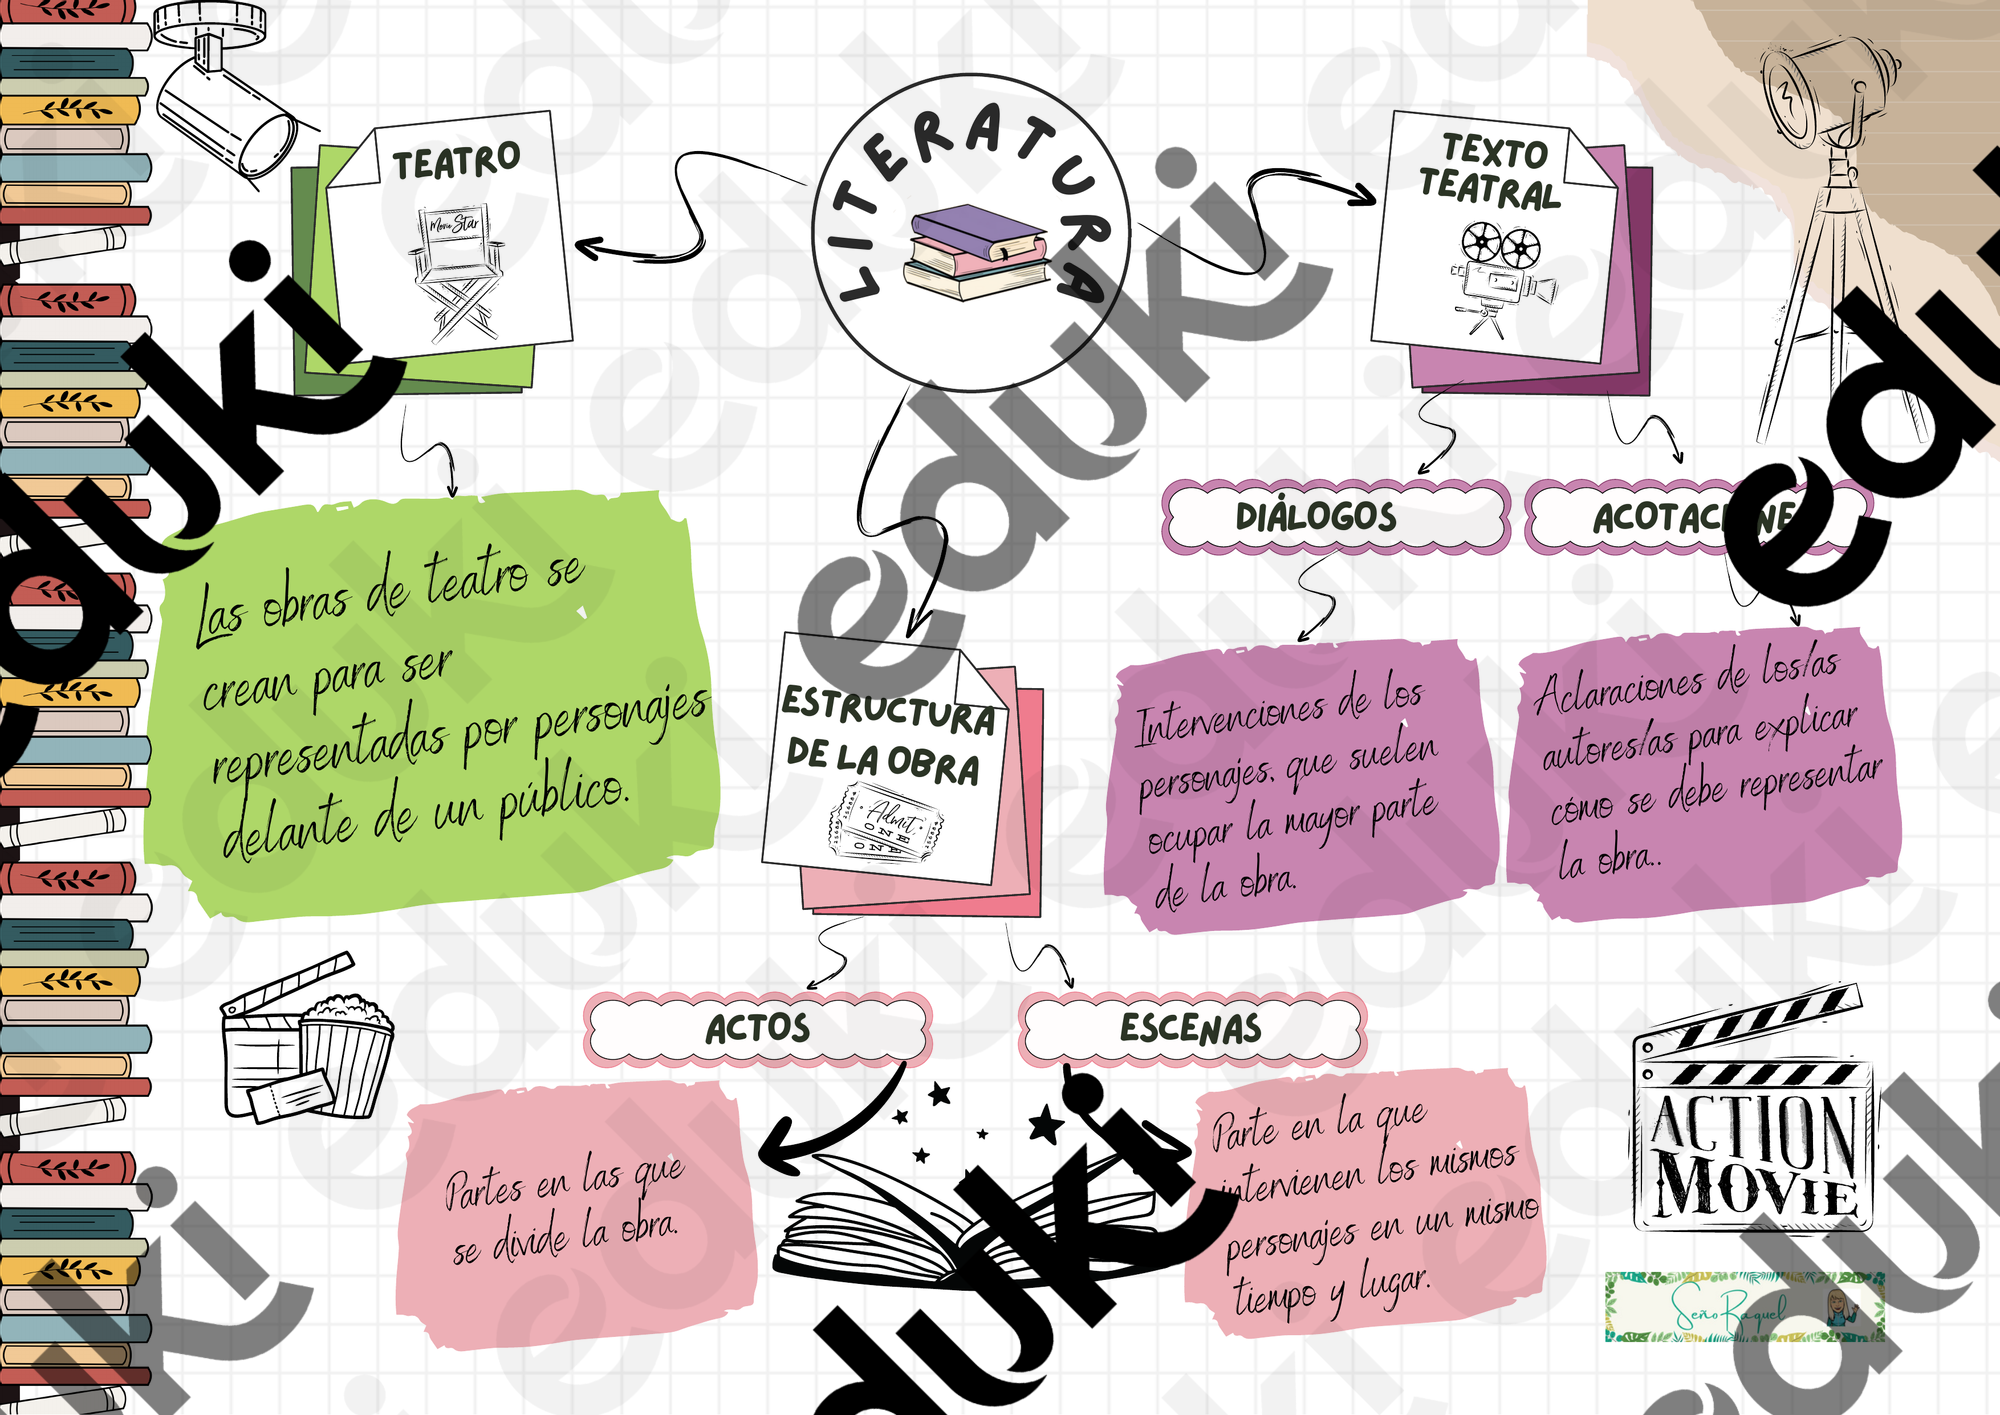 LITERATURA
TEATRO
Movie Star
TEXTO
TEATRAL
Las obras de teatro se
crean para ser
representadas por personajes
delante de un público.
ESTRUCTURA
DE LA OBRA
Admit
ONE
ONE
DIÁLOGOS
ACOTACIONE
Intervenciones de los
personajes, que suelen
ocupar la mayor parte
de la obra.
Aclaraciones de los/as
autores/as para explicar
cómo se debe representar
la obra..
ACTOS
ESCENAS
Partes en las que
se divide la obra.
Parte en la que
intervienen los mismos
personajes en un mismo
tiempo y lugar.
ACTION
MOVIE
Seño Raquel
eduki
eduki
eduki
eduki
eduki
eduki